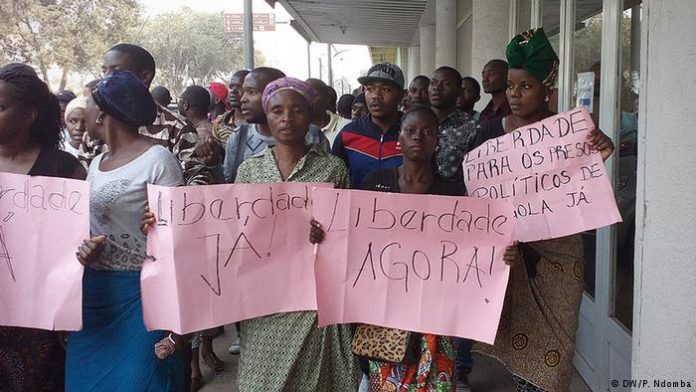 erdade
Á
Liberdade
JÁ!
Liberdade
AGORA!
LIBERDADE
PARA OS PRESOS
POLÍTICOS DE
GOLA JÁ
© DW/P. Ndomba